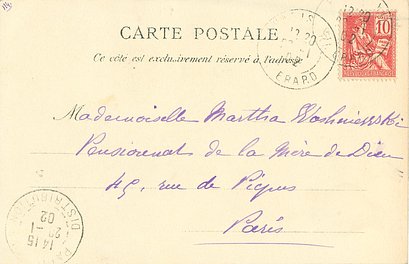 CARTE POSTALE
Ce côté est exclusivement réservé à l'adresse
10
12 20
DÉPART
Mademoiselle Martha
Pensionnat de la Mère de Dieu
45, rue de Picpus
Paris
14 15
20 - 1
02
DISTRIBUTION